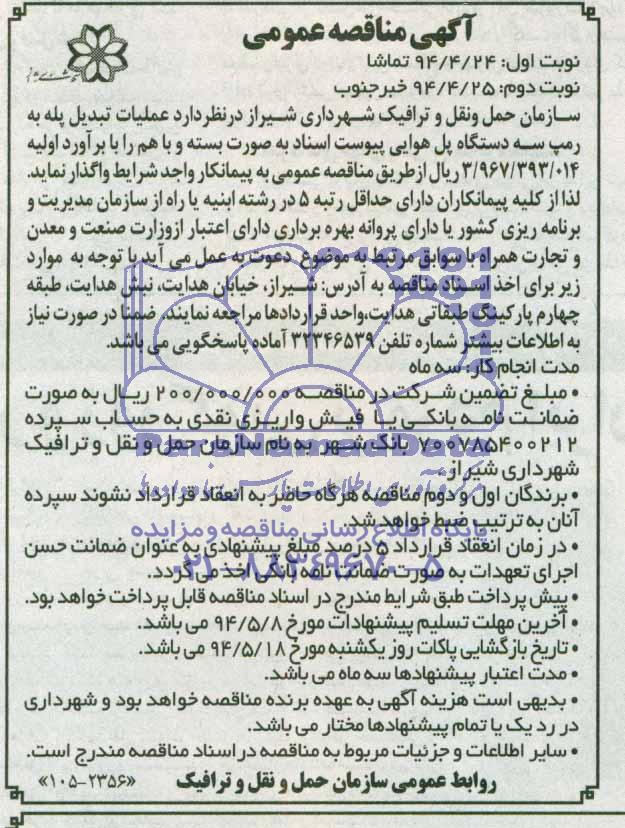 آگهی مناقصه عمومی
نوبت اول: ۹۴/۴/۲۴ تماشا
نوبت دوم: ۹۴/۴/۲۵ خبرجنوب
سازمان حمل ونقل و ترافیک شهرداری شیراز درنظردارد عملیات تبدیل پله به
رمپ سه دستگاه پل هوایی پیوست اسناد به صورت بسته و با هم را با برآورد اولیه
۳/۹۶۷/۳۹۳/۰۱۴ ریال ازطریق مناقصه عمومی به پیمانکار واجد شرایط واگذار نماید.
لذا از کلیه پیمانکاران دارای حداقل رتبه ۵ در رشته ابنیه یا راه از سازمان مدیریت و
برنامه ریزی کشور یا دارای پروانه بهره برداری دارای اعتبار ازوزارت صنعت و معدن
و تجارت همراه با سوابق مرتبط به موضوع دعوت به عمل می آید با توجه به موارد
زیر برای اخذ اسناد مناقصه به آدرس: شیراز، خیابان هدایت، نبش هدایت، طبقه
چهارم پارکینگ طبقاتی هدایت،واحد قراردادها مراجعه نمایند، ضمنا در صورت نیاز
به اطلاعات بیشتر شماره تلفن ۳۲۳۴۶۵۳۹ آماده پاسخگویی می باشد.
مدت انجام کار: سه ماه
• مبلغ تضمین شرکت در مناقصه ۲۰۰/۰۰۰/۰۰۰ ریال به صورت
ضمانت نامه بانکی یا فیش واریزی نقدی به حساب سپرده
۷۰۰۷۸۵۴۰۰۲۱۲ بانک شهر به نام سازمان حمل و نقل و ترافیک
شهرداری شیراز.
• برندگان اول و دوم مناقصه هرگاه حاضر به انعقاد قرارداد نشوند سپرده
آنان به ترتیب ضبط خواهد شد.
• در زمان انعقاد قرارداد ۵ درصد مبلغ پیشنهادی به عنوان ضمانت حسن
اجرای تعهدات به صورت ضمانت نامه بانکی اخذ می گردد.
• پیش پرداخت طبق شرایط مندرج در اسناد مناقصه قابل پرداخت خواهد بود.
• آخرین مهلت تسلیم پیشنهادات مورخ ۹۴/۵/۸ می باشد.
• تاریخ بازگشایی پاکات روز یکشنبه مورخ ۹۴/۵/۱۸ می باشد.
• مدت اعتبار پیشنهادها سه ماه می باشد.
• بدیهی است هزینه آگهی به عهده برنده مناقصه خواهد بود و شهرداری
در رد یک یا تمام پیشنهادها مختار می باشد.
• سایر اطلاعات و جزئیات مربوط به مناقصه در اسناد مناقصه مندرج است.
روابط عمومی سازمان حمل و نقل و ترافیک «۲۳۵۶-۱۰۵»
ParsNamadData
پایگاه اطلاع رسانی مناقصه و مزایده
۰۲۱-۸۸۳۴۹۶۷۰-۵